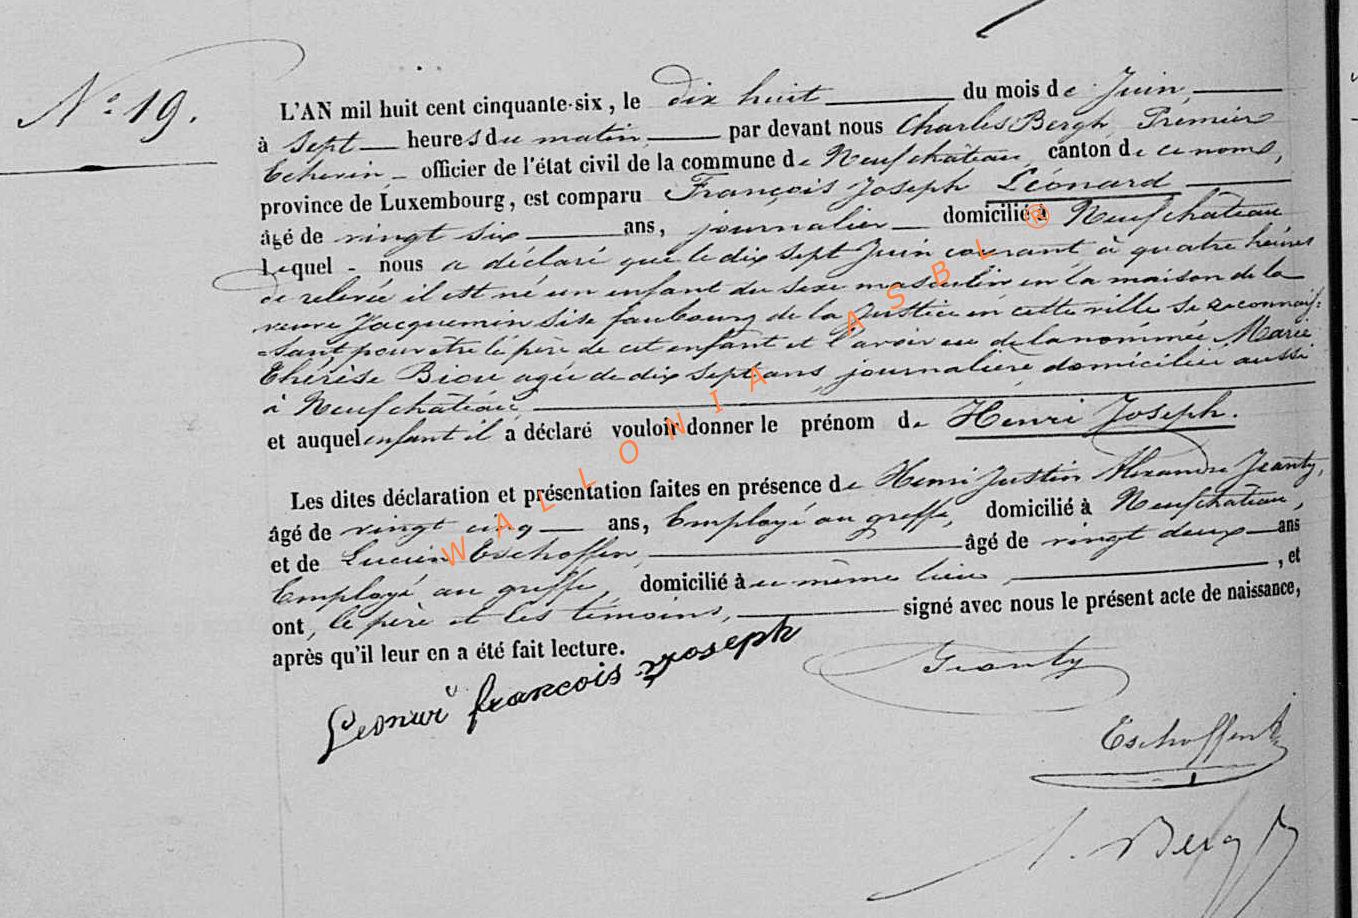 N° 19.
L'AN mil huit cent cinquante-six, le dix huit du mois de Juin
à Sept heures du matin par devant nous Charles Bergh, Prémier
Echevin officier de l'état civil de la commune de Neufchateau canton de ce nom,
province de Luxembourg, est comparu François Joseph Léonard
âgé de vingt six ans, journalier domicilié à Neufchateau
Lequel nous a déclaré que le dix sept Juin courant à quatre heures
de relevée il est né un enfant du sexe masculin en la maison de la
veuve Jacquemin Sise faubourg de la Justice en cette ville, se reconnais-
=sant pour être le père de cet enfant et l'avoir eu de la nommée Marie
Thérèse Biou agée de dix sept ans, journalière domiciliée aussi
à Neufchateau,
et auquel enfant il a déclaré vouloir donner le prénom de Henri Joseph.
Les dites déclaration et présentation faites en présence de Henri Justin Alexandre Jeanty,
âgé de vingt cinq ans, Employé au greffe, domicilié à Neufchateau,
et de Lucien Eschoffen, âgé de vingt deux ans
Employé au greffe, domicilié au même lieu, et
ont, le père et les témoins, signé avec nous le présent acte de naissance,
après qu'il leur en a été fait lecture.
Leonar francois joseph
Jeanty
Eschoffen
Bergh
WALLONIA ASBL ®